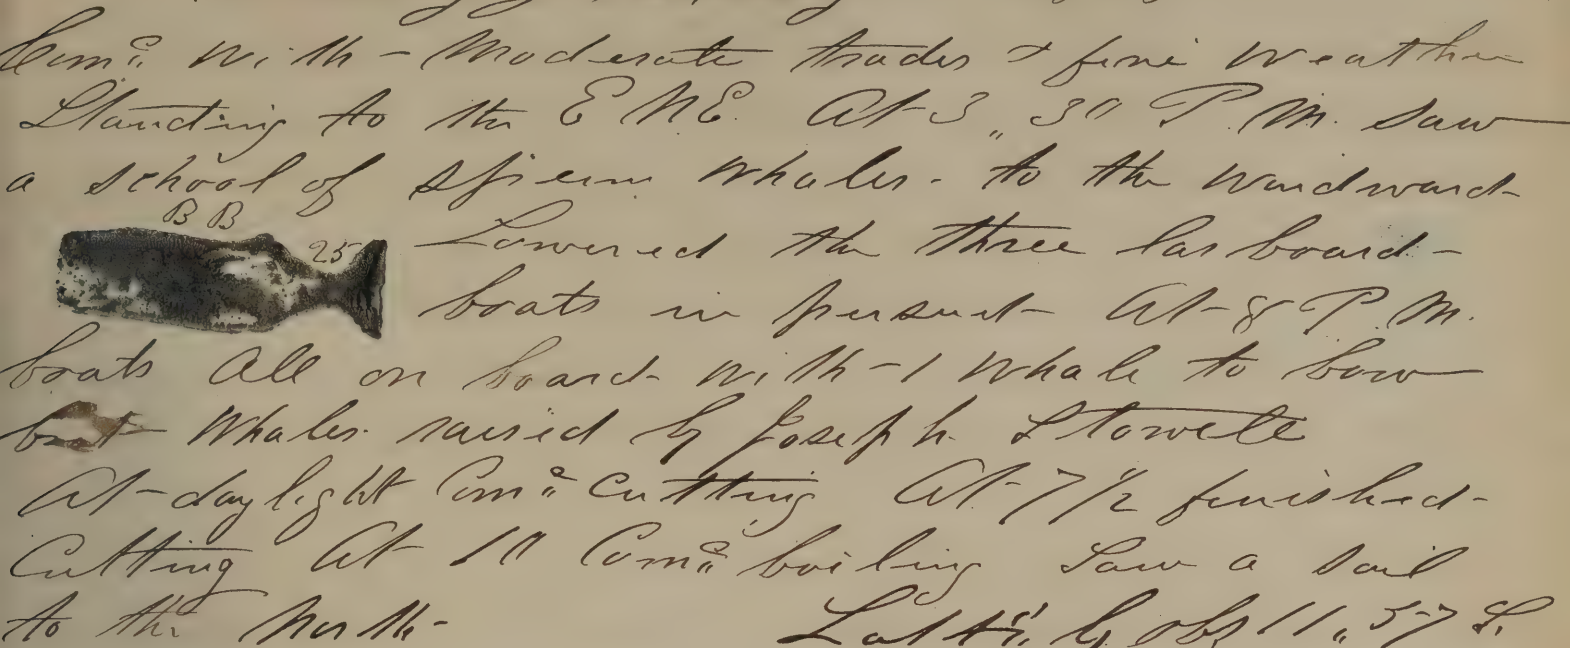 Com^e with - Moderate trades & fine weather
Standing to the E N E. At 3,,30 P. M. saw
a school of sperm whales - to the windward
B B
25
Lowered the three larboard -
boats in persuit - At - 8 P. M.
boats all on board with - 1 whale to bow
boat Whales raised by Joseph Stowell
At - daylight Com^e Cutting At - 7 1/2 finished -
Cutting At 10 Com^e boiling Saw a sail
to the North - Latt by obs 11,,57 S.